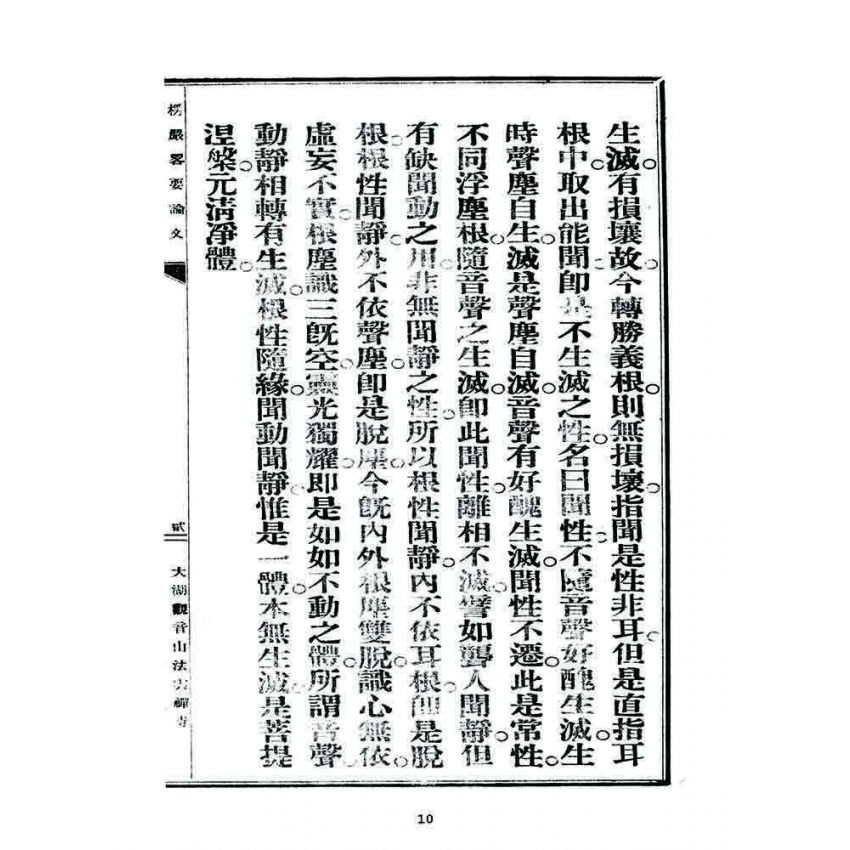 生滅。有損壞故。今轉勝義根。則無損壞。指聞是性非耳。但是直指耳
根中。取出能聞。即是不生滅之性。名曰聞性。不隨音聲好醜生滅。生
時聲塵自生。滅是聲塵自滅。音聲有好醜生滅。聞性不遷。此是常性。
不同浮塵根。隨音聲之生滅。即此聞性。離相不滅。譬如聾人聞靜。但
有缺聞動之用。非無聞靜之性。所以根性聞靜。內不依耳根。即是脫
根。根性聞靜。外不依聲塵。即是脫塵。今既內外根塵雙脫。識心無依。
虛妄不實。根塵識三既空。靈光獨耀。即是如如不動之體。所謂音聲
動靜相轉。有生滅。根性隨緣。聞動聞靜。惟是一體。本無生滅。是菩提
涅槃元清淨體。
楞嚴畧要論文
貳
大湖觀音山法雲禪寺
10